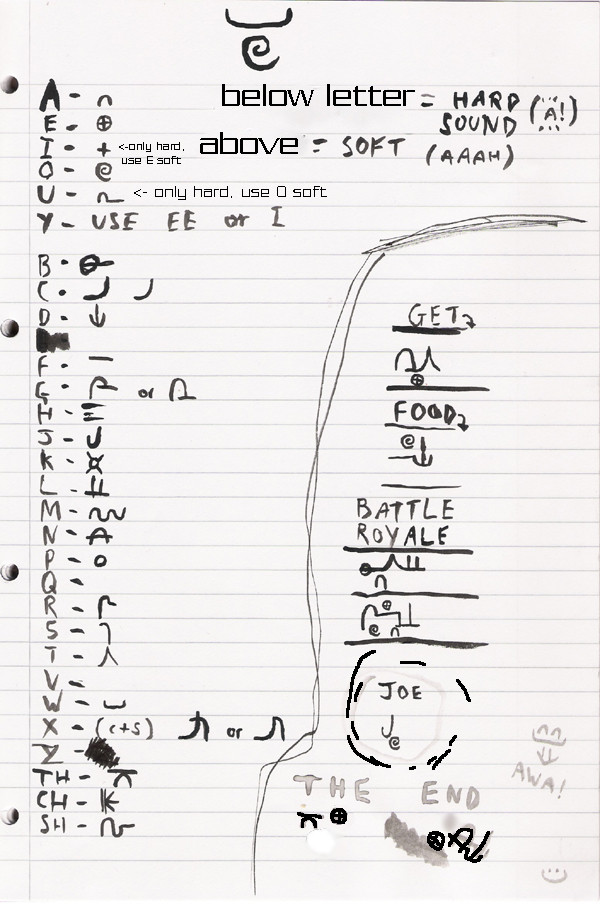 below letter = HARD SOUND (A!)
above = SOFT (AAAH)
A -
E -
I - <-only hard, use E soft
O -
U - <- only hard, use O soft
Y - USE EE or I
B -
C -
D -
F -
G - or
H -
J -
K -
L -
M -
N -
P -
Q -
R -
S -
T -
V -
W -
X - (c+s) or
Z -
TH -
CH -
SH -
GET
FOOD
BATTLE
ROYALE
JOE
AWA!
THE END